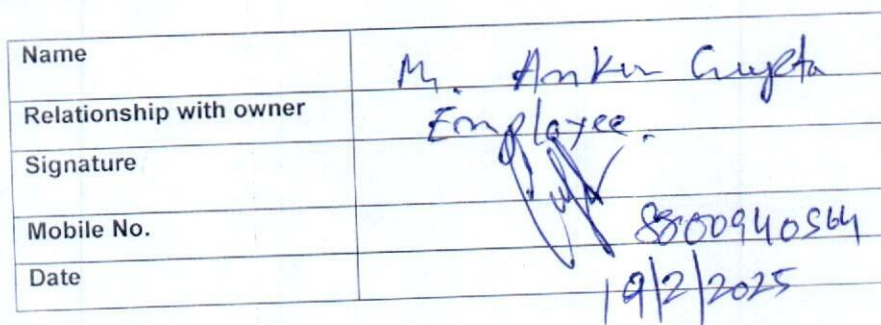 Name M. Ankur Gupta
Relationship with owner Employee.
Signature
Mobile No. 8800940564
Date 19/2/2025